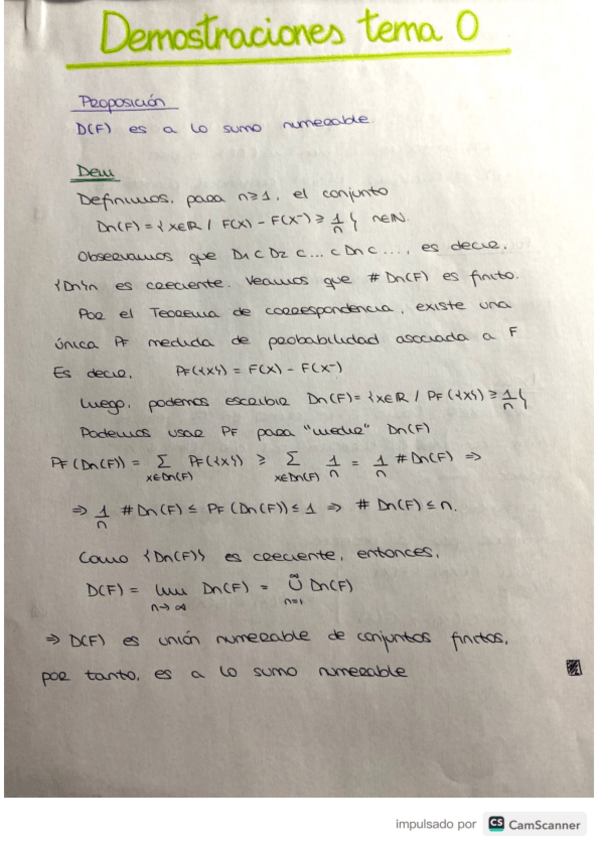 Demostraciones tema 0
Proposición
D(F) es a lo sumo numerable.
Dem
Definimos, para n≥1, el conjunto
Dn(F) = {x∈ℝ / F(x) - F(x⁻) ≥ 1/n} n∈ℕ.
Observamos que D1 ⊂ D2 ⊂ ... ⊂ Dn ⊂ ..., es decir,
{Dn}n es creciente. Veamos que # Dn(F) es finito.
Por el Teorema de correspondencia, existe una
única PF medida de probabilidad asociada a F
Es decir, PF({x}) = F(x) - F(x⁻)
Luego, podemos escribir Dn(F) = {x∈ℝ / PF({x}) ≥ 1/n}
Podemos usar PF para "medir" Dn(F)
PF(Dn(F)) = Σ x∈Dn(F) PF({x}) ≥ Σ x∈Dn(F) 1/n = 1/n #Dn(F) ⇒
⇒ 1/n # Dn(F) ≤ PF(Dn(F)) ≤ 1 ⇒ # Dn(F) ≤ n.
Como {Dn(F)} es creciente, entonces,
D(F) = lim n→∞ Dn(F) = ∪ n=1 ∞ Dn(F)
⇒ D(F) es unión numerable de conjuntos finitos,
por tanto, es a lo sumo numerable
impulsado por CS CamScanner